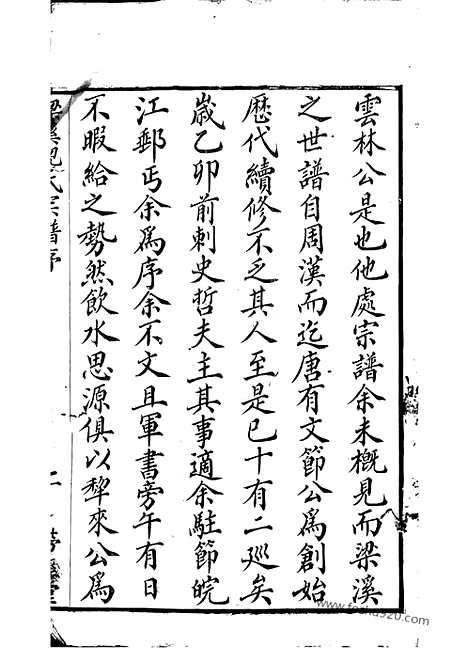 雲林公是也他處宗譜余未概見而梁溪
之世譜自周漢而迄唐有文節公爲創始
歷代續修不乏其人至是已十有二廵矣
歲乙卯前刺史哲夫主其事適余駐節皖
江郵丐余爲序余不文且軍書旁午有日
不暇給之勢然飲水思源俱以犂來公爲
氏宗譜序
二